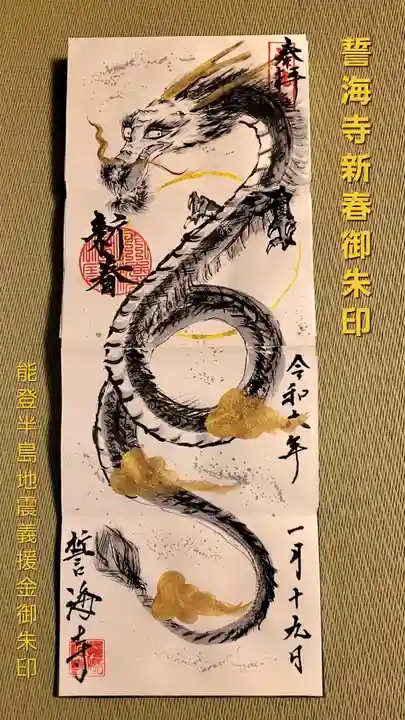 誓海寺新春御朱印
奉拝
令和六年
一月十九日
新春
誓海寺
能登半島地震義援金御朱印